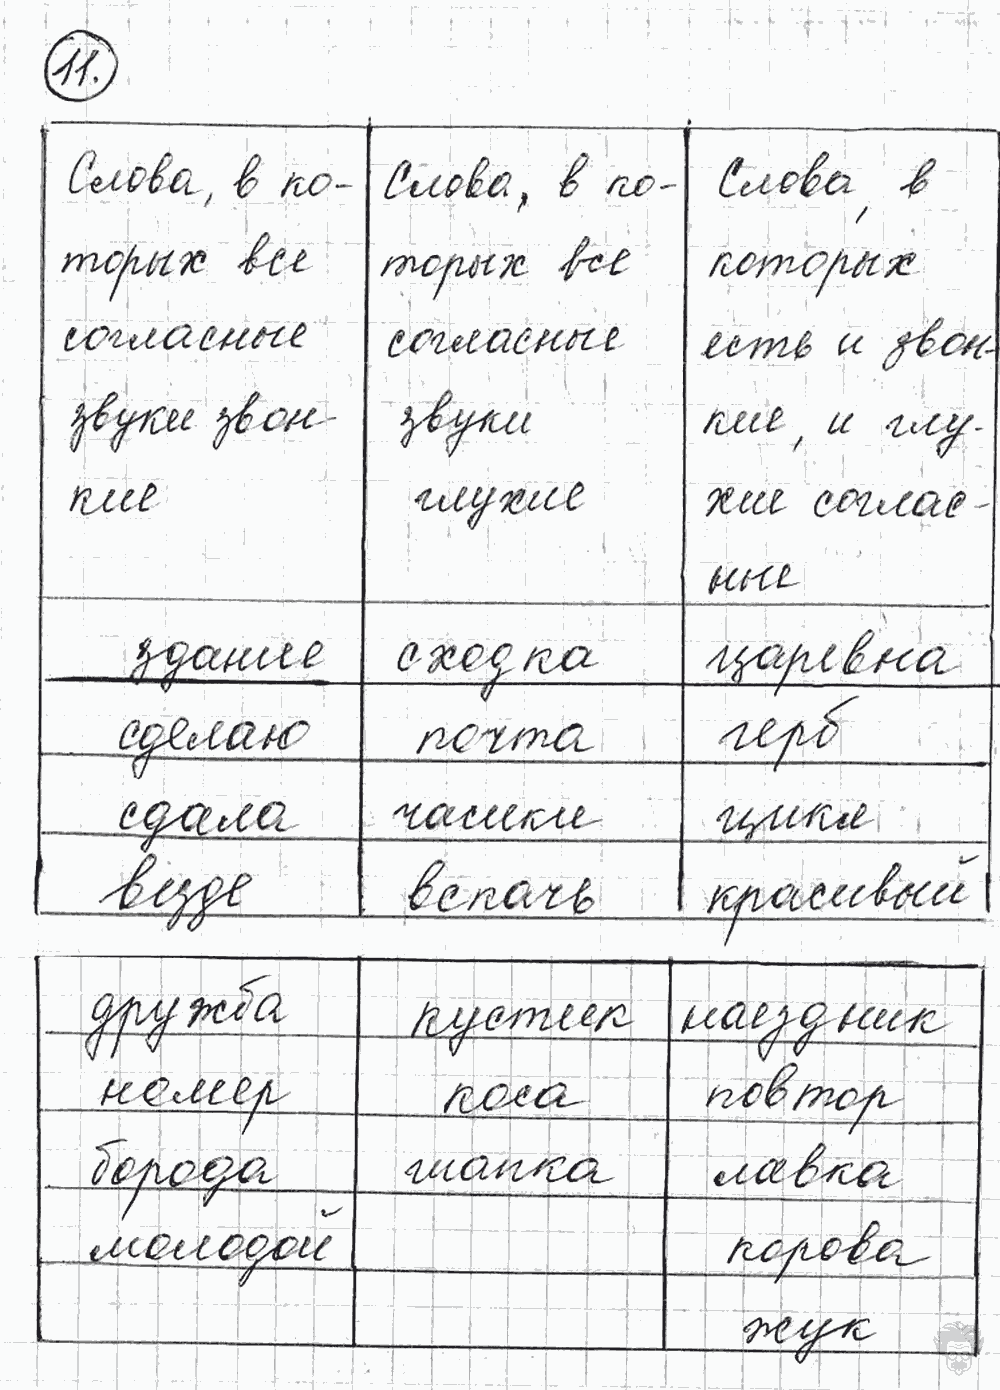 11.
Слова, в ко-
торых все
согласные
звуки звон-
кие
Слова, в ко-
торых все
согласные
звуки
глухие
Слова, в
которых
есть и звон-
кие, и глу-
хие соглас-
ные
здание сходка царевна
сделаю почта герб
сдала часики цикл
везде вскачь красивый
дружба кустик наездник
номер коса повтор
борода шапка лавка
молодой корова
жук